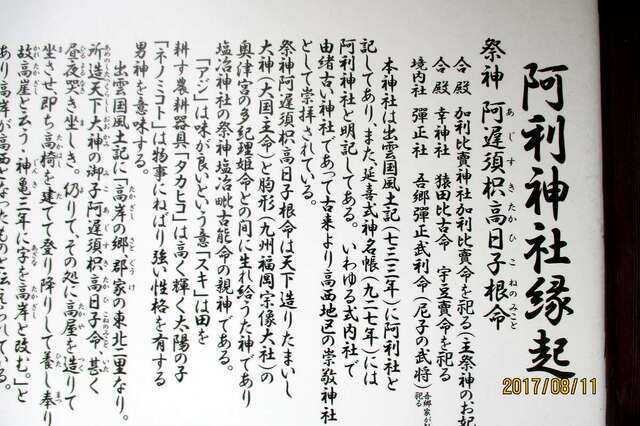 阿利神社縁起
祭神 阿遅須枳高日子根命
あじすきたかひこねのみこと
合殿 加利比賣神社加利比賣命を祀る(主祭神のお妃
合殿 幸神社 猿田比古命 宇豆賣命を祀る
境内社 彈正社 吾郷彈正武利命(尼子の武将)
本神社は出雲国風土記(七三三年)に阿利社と
記してあり、また、延喜式神名帳(九二七年)には
阿利神社と明記してある。いわゆる式内社で
由緒古い神社であって古来より高西地区の崇敬神社
として崇拝されている。
祭神阿遅須枳高日子根命は天下造りたまいし
大神(大国主命)と胸形(九州福岡宗像大社)の
奥津宮の多紀理姫命との間に生れ給うた神であり
塩冶神社の祭神塩冶毗古能命の親神である。
「アジ」は味が良いという意「スキ」は田を
耕す農耕器具「タカヒコ」は高く輝く太陽の子
「ネノミコト」は物事にねばり強い性格を有する
男神を意味する。
出雲国風土記に「高岸の郷 郡家の東北二里なり。
所造天下大神の御子阿遅須枳高日子命、甚く
昼夜哭き坐しき。仍りて、その処に高屋を造りて
坐させ即ち高椅を建てて登り降りして養し奉り
故高崖と云う、神亀三年に字を高岸と改む。」と
あり高岸が高西となったものと伝えられている。
2017/08/11